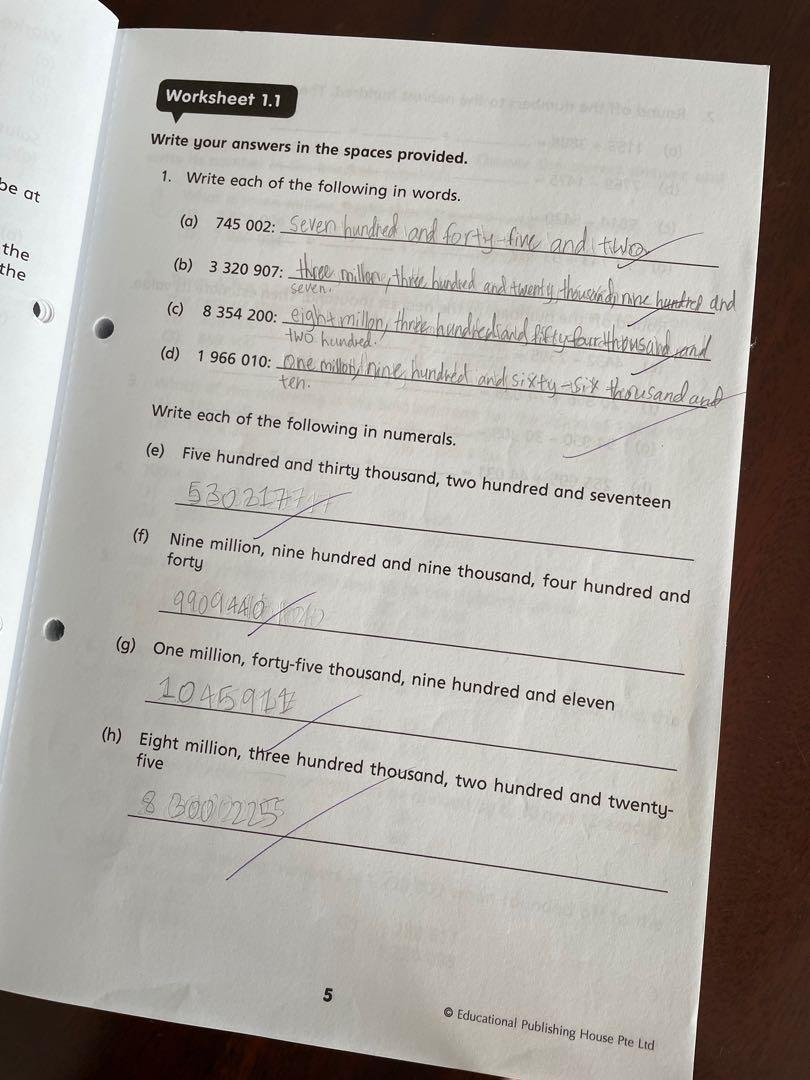 be at
the
the
Worksheet 1.1
Write your answers in the spaces provided.
1. Write each of the following in words.
(a) 745 002: seven hundred and forty-five and two
(b) 3 320 907: three millon, three hundred and twenty, thousand, nine hundred and
seven.
(c) 8 354 200: eight millon, three hundred and fifty-four thousand, and
two hundred.
(d) 1 966 010: one millon, nine hundred and sixty-six thousand and
ten.
Write each of the following in numerals.
(e) Five hundred and thirty thousand, two hundred and seventeen
530217
(f) Nine million, nine hundred and nine thousand, four hundred and
forty
9909440
(g) One million, forty-five thousand, nine hundred and eleven
1045911
(h) Eight million, three hundred thousand, two hundred and twenty-
five
8300225
5
© Educational Publishing House Pte Ltd